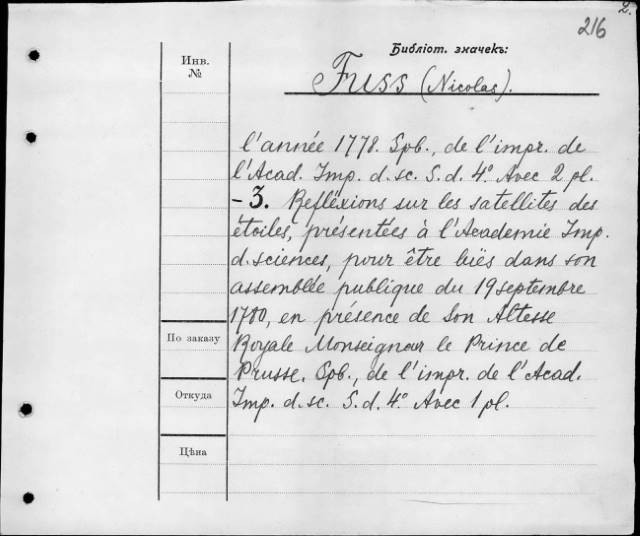 2.
216
Библіот. значекъ:
Инв.
№
Fuss (Nicolas).
l'année 1778. Spb., de l'impr. de
l'Acad. Imp. d. sc. S. d. 4º Avec 2 pl.
– 3. Refléxions sur les satellites des
étoiles, présentées à l'Academie Imp.
d. sciences, pour être luës dans son
assemblée publique du 19 septembre
1780, en présence de Son Altesse
Royale Monseignar le Prince de
Prusse. Spb., de l'impr. de l'Acad.
Imp. d. sc. S. d. 4º Avec 1 pl.
По заказу
Откуда
Цѣна